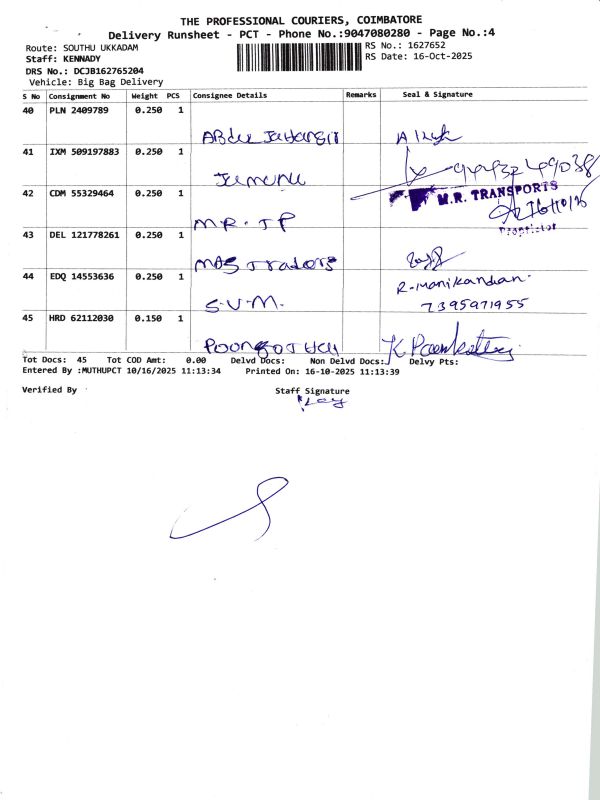 THE PROFESSIONAL COURIERS, COIMBATORE
Delivery Runsheet - PCT - Phone No.:9047080280 - Page No.:4
Route: SOUTHU UKKADAM
RS No.: 1627652
Staff: KENNADY
RS Date: 16-Oct-2025
DRS No.: DCJB162765204
Vehicle: Big Bag Delivery
S No Consignment No Weight PCS Consignee Details Remarks Seal & Signature
40 PLN 2409789 0.250 1
41 IXM 509197883 0.250 1
42 CDM 55329464 0.250 1
M.R. TRANSPORTS
M.R. JP
Proprietor
43 DEL 121778261 0.250 1
MAS Traders
44 EDQ 14553636 0.250 1
R. Manikandan.
S.V.M.
7395971955
45 HRD 62112030 0.150 1
Tot Docs: 45 Tot COD Amt: 0.00 Delvd Docs: Non Delvd Docs: Delvy Pts:
Entered By :MUTHUPCT 10/16/2025 11:13:34 Printed On: 16-10-2025 11:13:39
Verified By Staff Signature